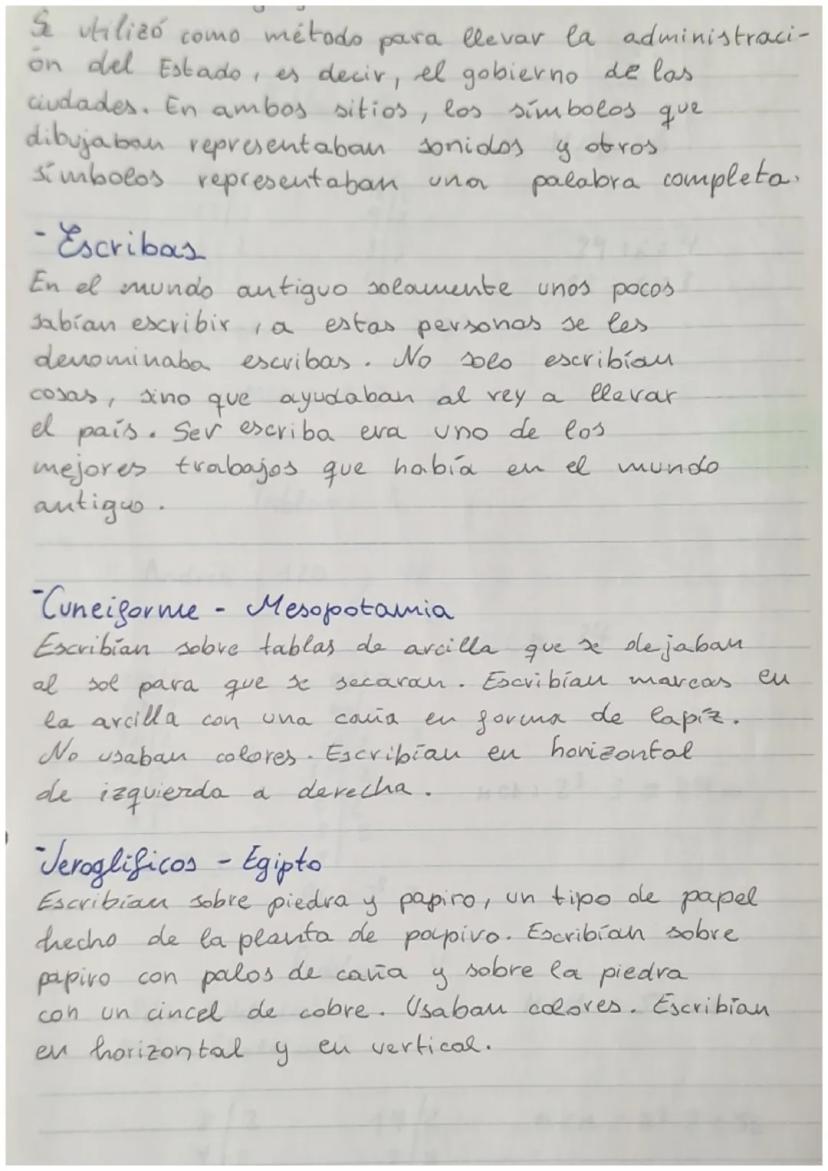 Se utilizó como método para llevar la administraci-
ón del Estado, es decir, el gobierno de las
ciudades. En ambos sitios, los símbolos que
dibujaban representaban sonidos y otros
símbolos representaban una palabra completa.
- Escribas
En el mundo antiguo solamente unos pocos
sabían escribir, a estas personas se les
denominaba escribas. No solo escribían
cosas, sino que ayudaban al rey a llevar
el país. Ser escriba era uno de los
mejores trabajos que había en el mundo
antiguo.
- Cuneiforme - Mesopotamia
Escribían sobre tablas de arcilla que se dejaban
al sol para que se secaran. Escribían marcas en
la arcilla con una caña en forma de lapíz.
No usaban colores. Escribían en horizontal
de izquierda a derecha.
- Jeroglíficos - Egipto
Escribían sobre piedra y papiro, un tipo de papel
hecho de la planta de papiro. Escribían sobre
papiro con palos de caña y sobre la piedra
con un cincel de cobre. Usaban colores. Escribían
en horizontal y en vertical.